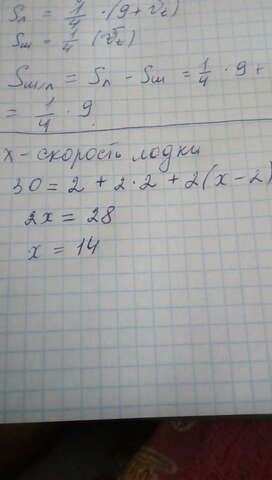 Sл = 1/4 · (9 + Vт)
Sш = 1/4 (Vт)
Sш/л = Sл - Sш = 1/4 · 9 +
= 1/4 · 9
x - скорость лодки
30 = 2 + 2·2 + 2(x - 2)
2x = 28
x = 14